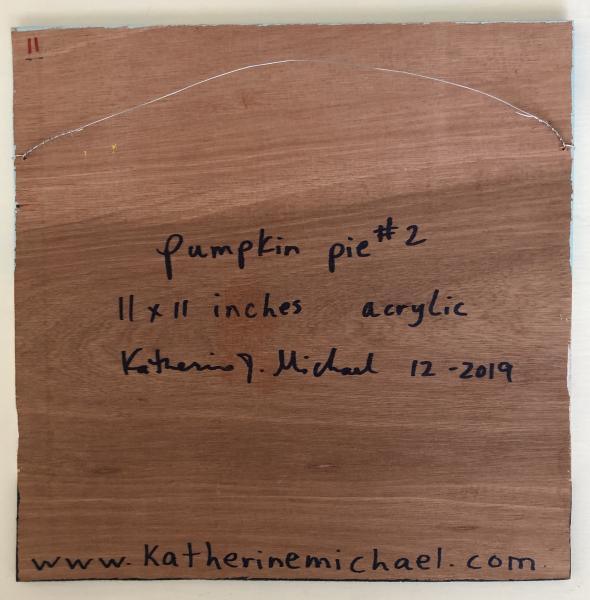 11
pumpkin pie #2
11 x 11 inches acrylic
Katherine J. Michael 12-2019
www.katherinemichael.com